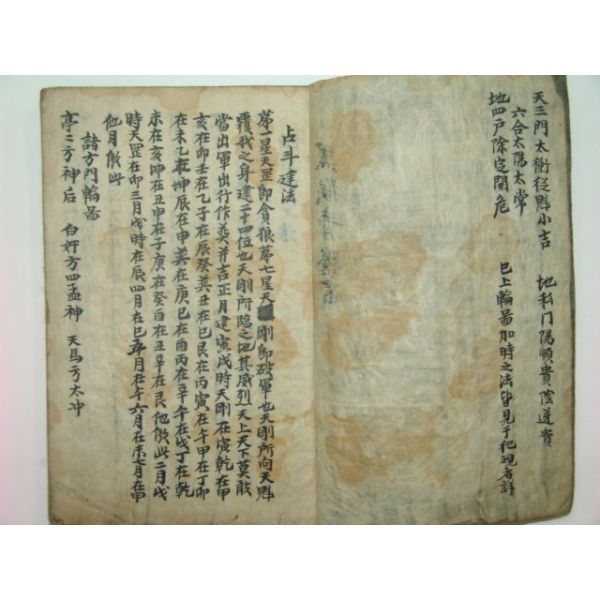 天三門太衝從魁小吉　地私门陽順貴陰逆貴
六合太陽太常
地四戸除定開危　已上輪啚加時之法皆見于他觀者詳
占斗建法
苐一星天罡即貪狼苐七星天剛即破軍也天剛所向天魁
覆我之身建二十四位也天剛所臨之地其威烈天上天下莫敢
當出軍出行作並吉正月建寅戌時天剛在寅乾在甲
亥在卯壬在乙子在辰癸在丑在巳艮在丙寅在午甲在丁卯
在未乙在坤辰在申巽在庚巳在酉丙在辛午在戌丁在乾
未在亥坤在壬申在子庚在癸酉在丑辛在艮他倣此二月戌
時天罡在卯三月戌時在辰四月在巳五月在午六月在未七月在申
他月倣此
諸方門輪啚
亭亭方神后　白奸方四孟神　天馬方太冲